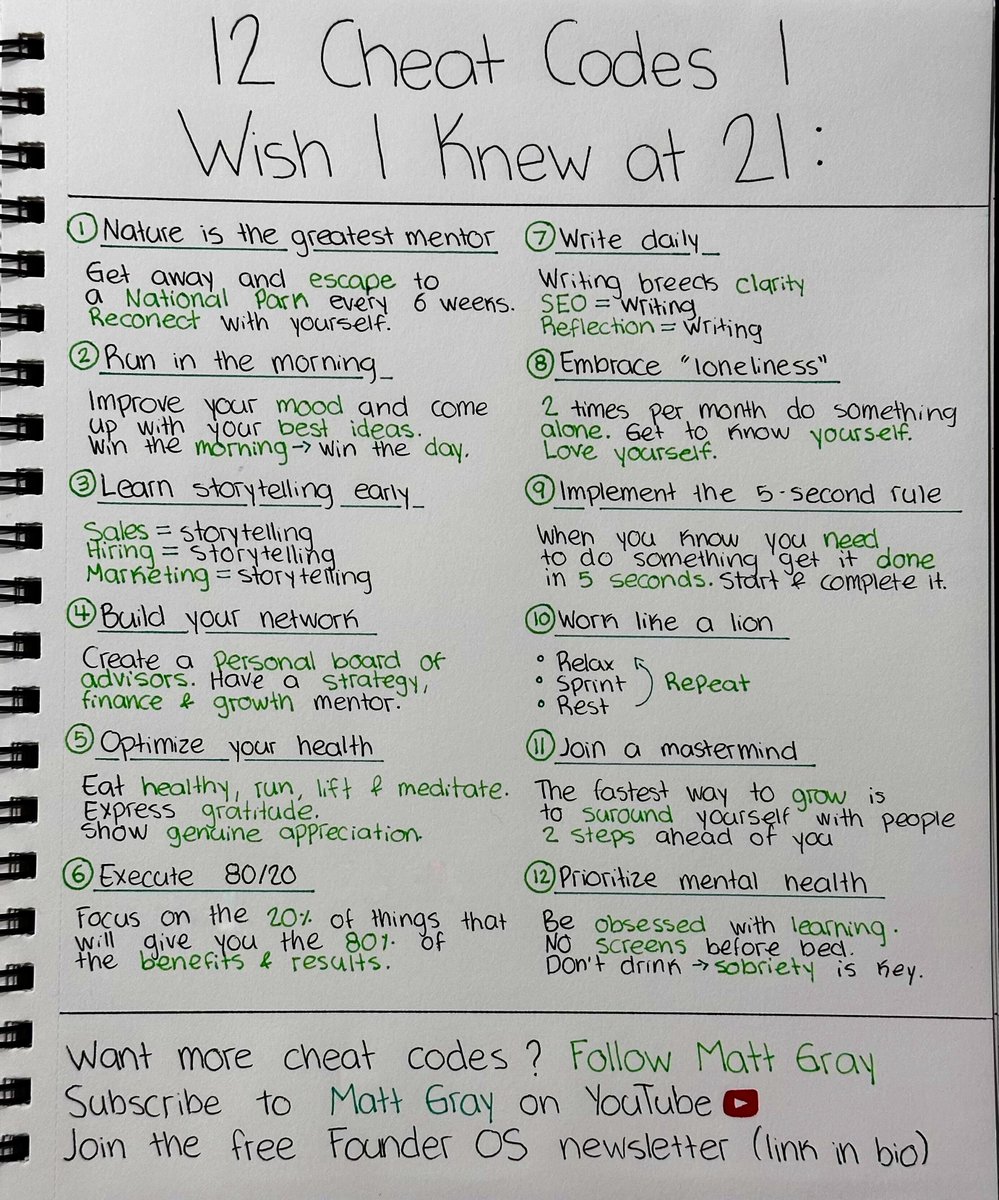 12 Cheat Codes I
Wish I Knew at 21:
① Nature is the greatest mentor
Get away and escape to
a National Park every 6 weeks.
Reconect with yourself.
② Run in the morning
Improve your mood and come
up with your best ideas.
Win the morning → win the day.
③ Learn storytelling early
Sales = storytelling
Hiring = storytelling
Marketing = storytelling
④ Build your network
Create a personal board of
advisors. Have a strategy,
finance & growth mentor.
⑤ Optimize your health
Eat healthy, run, lift & meditate.
Express gratitude.
Show genuine appreciation.
⑥ Execute 80/20
Focus on the 20% of things that
will give you the 80% of
the benefits & results.
⑦ Write daily
Writing breeds clarity
SEO = Writing
Reflection = Writing
⑧ Embrace "loneliness"
2 times per month do something
alone. Get to know yourself.
Love yourself.
⑨ Implement the 5-second rule
When you know you need
to do something get it done
in 5 seconds. Start & complete it.
⑩ Work like a lion
• Relax
• Sprint
• Rest
Repeat
⑪ Join a mastermind
The fastest way to grow is
to suround yourself with people
2 steps ahead of you
⑫ Prioritize mental health
Be obsessed with learning.
No screens before bed.
Don't drink → sobriety is key.
Want more cheat codes? Follow Matt Gray
Subscribe to Matt Gray on YouTube
Join the free Founder OS newsletter (link in bio)